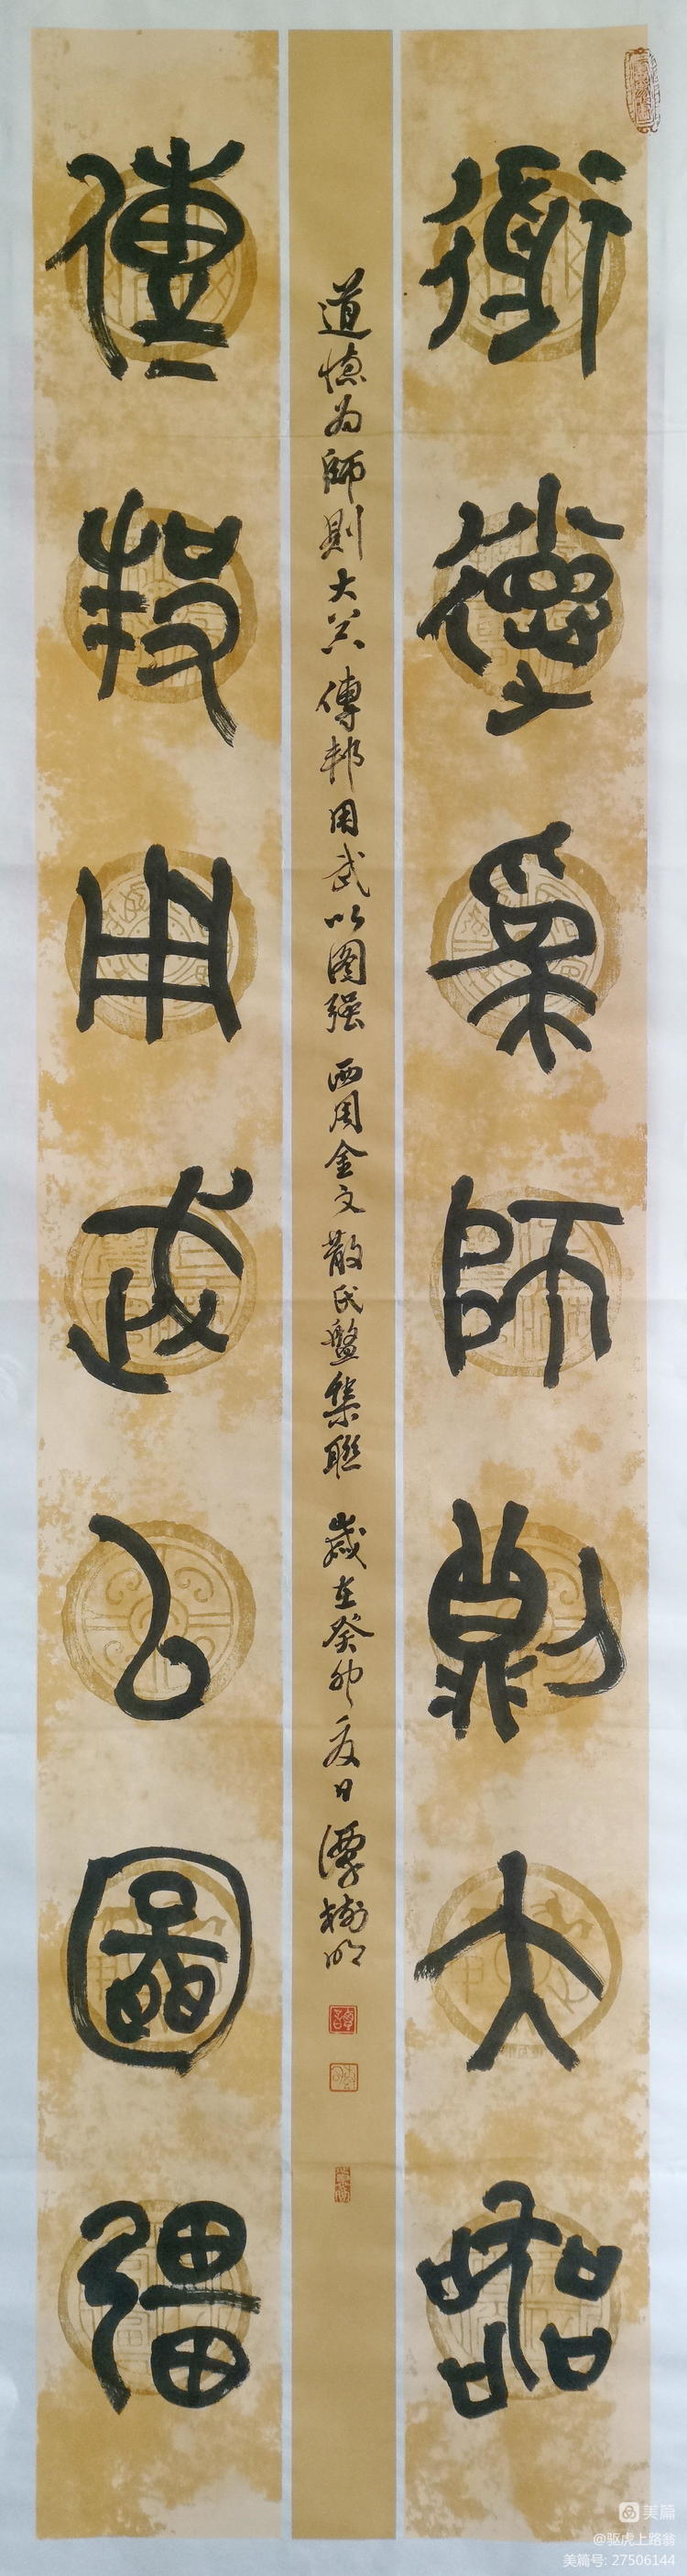 道德爲師則大器
傳邦用武以圖彊
道德为師則大器傳邦用武以圖强 西周金文散氏盤集聯 歲在癸卯夏日 譚樹明
美篇
@驱虎上路翁
美篇号: 27506144